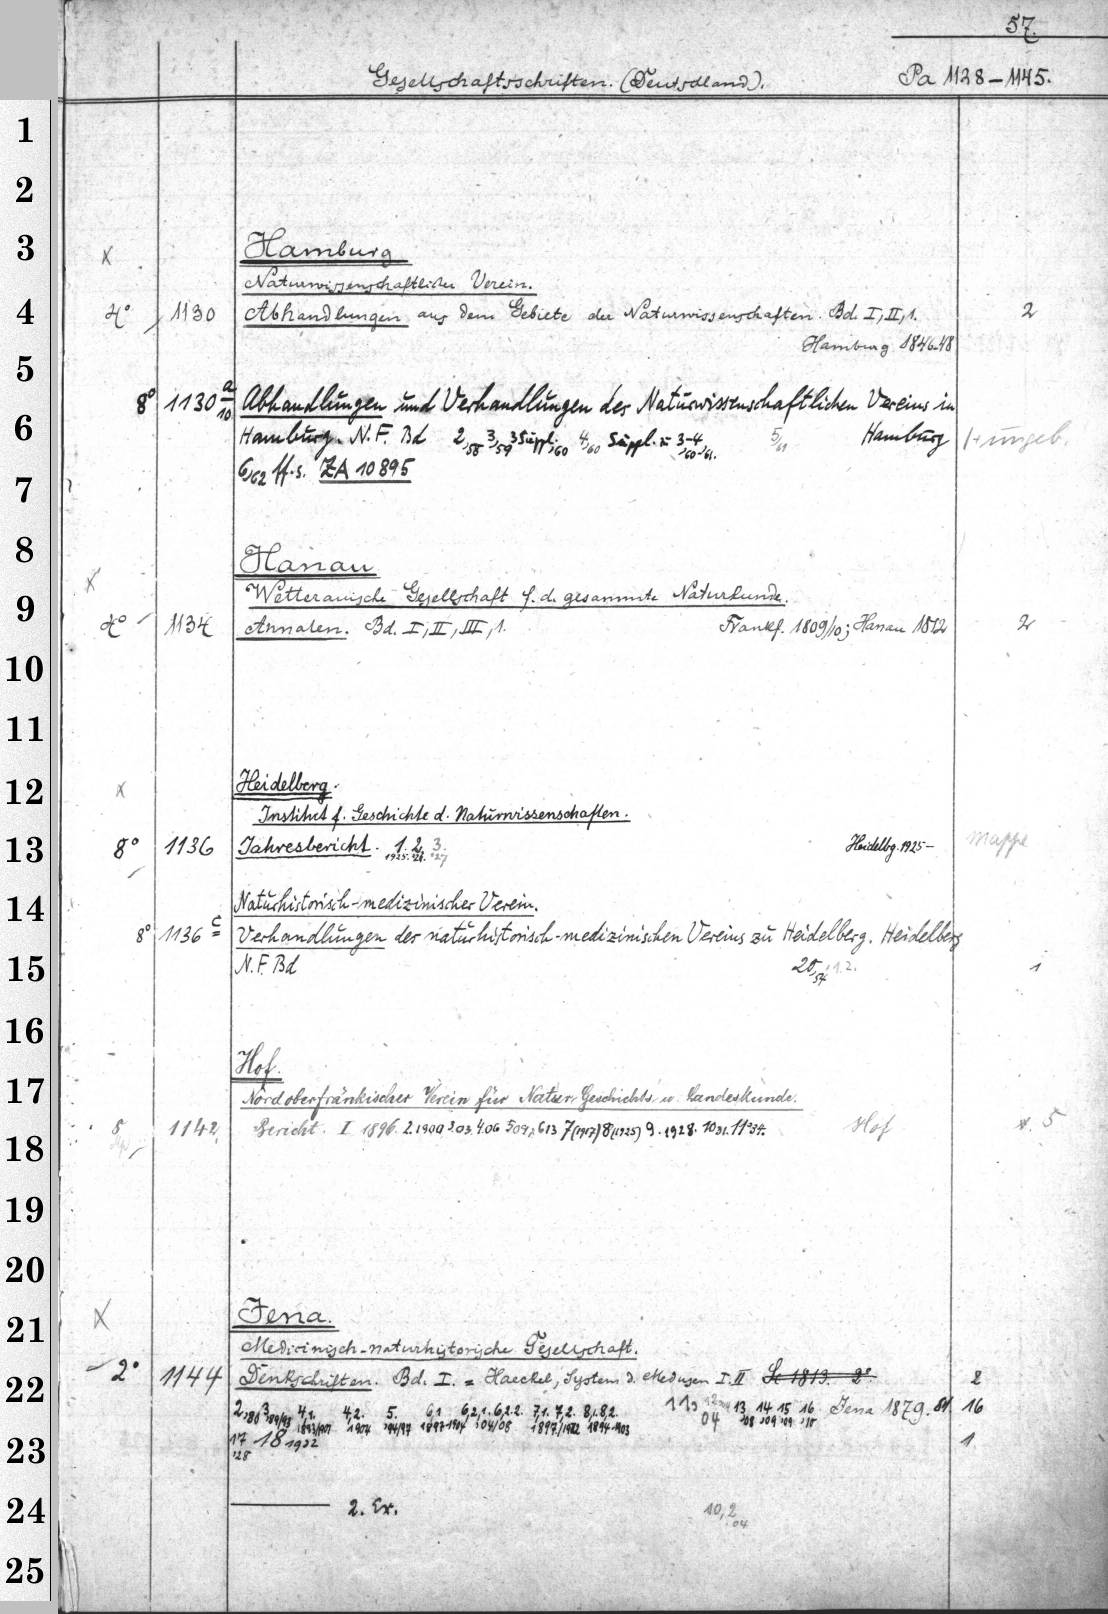 57.
Gesellschaftsschriften. (Deutschland). Pa 1128–1145.
1
2
3 x Hamburg
Naturwissenschaftlicher Verein.
4 4° 1130 Abhandlungen aus dem Gebiete der Naturwissenschaften. Bd. I, II, 1. 2
Hamburg 1846-48
5
8° 1130 a/10 Abhandlungen und Verhandlungen des Naturwissenschaftlichen Vereins in
6 Hamburg. N.F. Bd 2,58 3,59 3 Suppl.,60 4/60 Suppl. zu 3-4,60,61. 5/61 Hamburg 1+ungeb.
6,62 ff. s. ZA 10895
7
8 Hanau
x Wetterauische Gesellschaft f. d. gesammte Naturkunde.
9 4° 1134 Annalen. Bd. I, II, III, 1. Frankf. 1809/10; Hanau 1812 2
10
11
12 x Heidelberg.
Institut f. Geschichte d. Naturwissenschaften.
13 8° 1136 Jahresbericht. 1. 1925. 2. '26. 3. '27 Heidelbg. 1925– Mappe
14 Naturhistorisch-medizinischer Verein.
8° 1136 c Verhandlungen des naturhistorisch-medizinischen Vereins zu Heidelberg. Heidelberg
15 N.F. Bd 20,54 1.2. 1
16
17 Hof.
Nordoberfränkischer Verein für Natur- Geschichts- u. Landeskunde.
18 8 1142 Bericht. I 1896. 2.1900 3 03. 4.06 5 09, 6 13 7 (1917) 8 (1925) 9. 1928. 10 31. 11 34. Hof 5
19
20
21 X Jena.
Medicinisch-naturhistorische Gesellschaft.
22 2° 1144 Denkschriften. Bd. I. = Haeckel, System d. Medusen I. II Sc 1813. 2°. 2
2,80 3 89/93 4,1. 1893/1907 4,2. 1904 5. 94/97 6,1 1897-1904 6,2,1. 6,2,2. 04/08 7,1. 7,2. 1897/1912 8,1. 8,2. 1894-1903 11, 04 12 13 '08 14 '09 15 '09 16 '10 Jena 1879. 81 16
23 17 '28 18 1932 1
24 2. Ex. 10,2 04
25